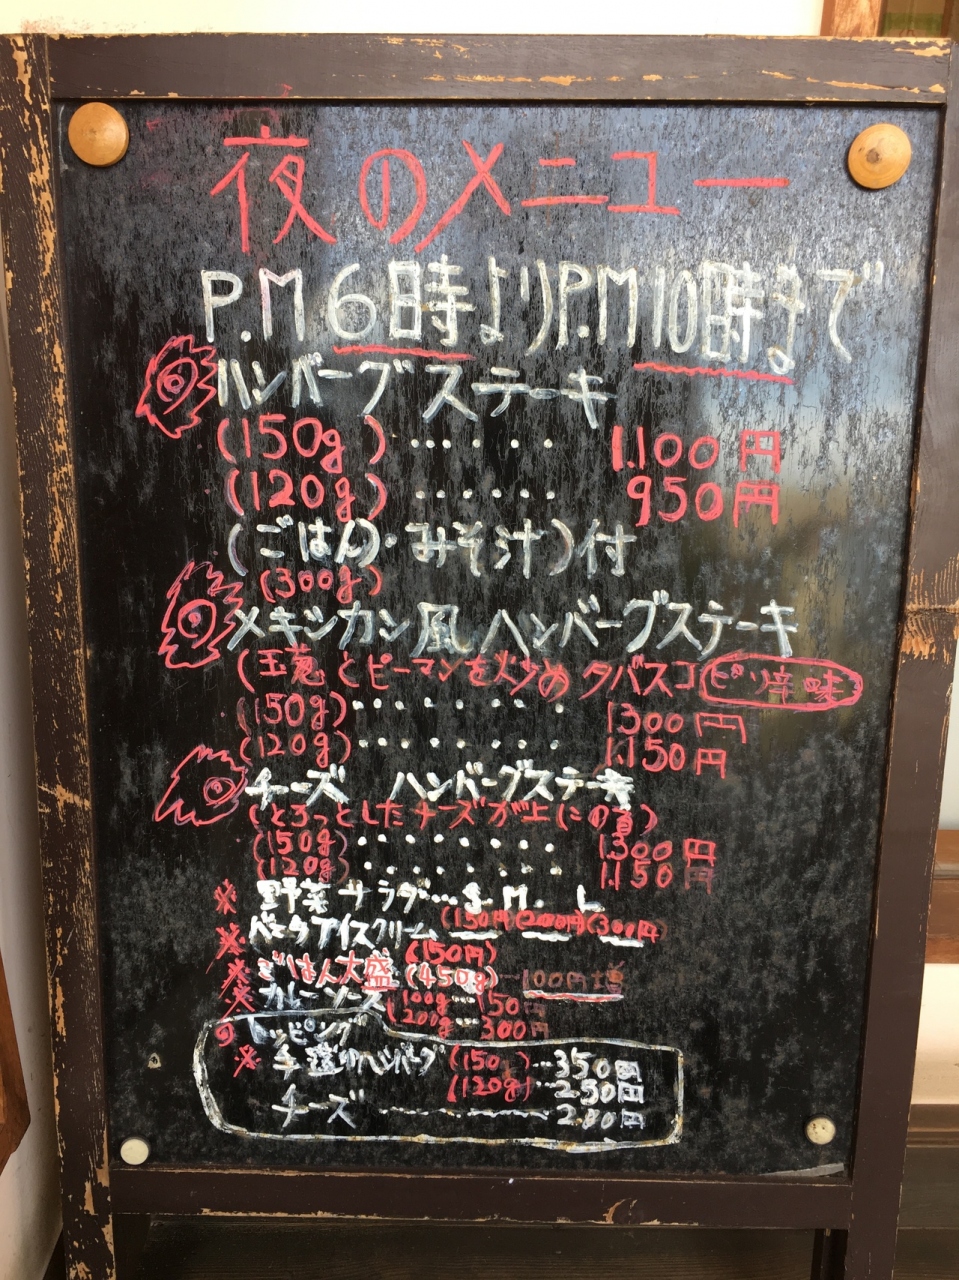 夜のメニュー
P.M 6時よりP.M 10時まで
ハンバーグステーキ
(150g)‥‥‥ 1.100円
(120g)‥‥‥ 950円
(ごはん・みそ汁)付
(300g)
メキシカン風ハンバーグステーキ
(玉葱とピーマンを炒めタバスコ ピリ辛味
(150g)‥‥‥ 1300円
(120g)‥‥‥ 1.150円
チーズ ハンバーグステーキ
(とろっとしたチーズが上に)
(150g)‥‥‥ 1300円
(120g)‥‥‥ 1.150円
※ 野菜サラダ‥‥S. M. L
(150円)(200円)(300円)
※ アイスクリーム
(150円)
※ ごはん大盛(450g) 100円増
※ カレーソース 100g‥‥150円
200g‥‥300円
トッピング
※ 手造りハンバーグ(150g)‥350円
(120g)‥250円
チーズ ------ 200円